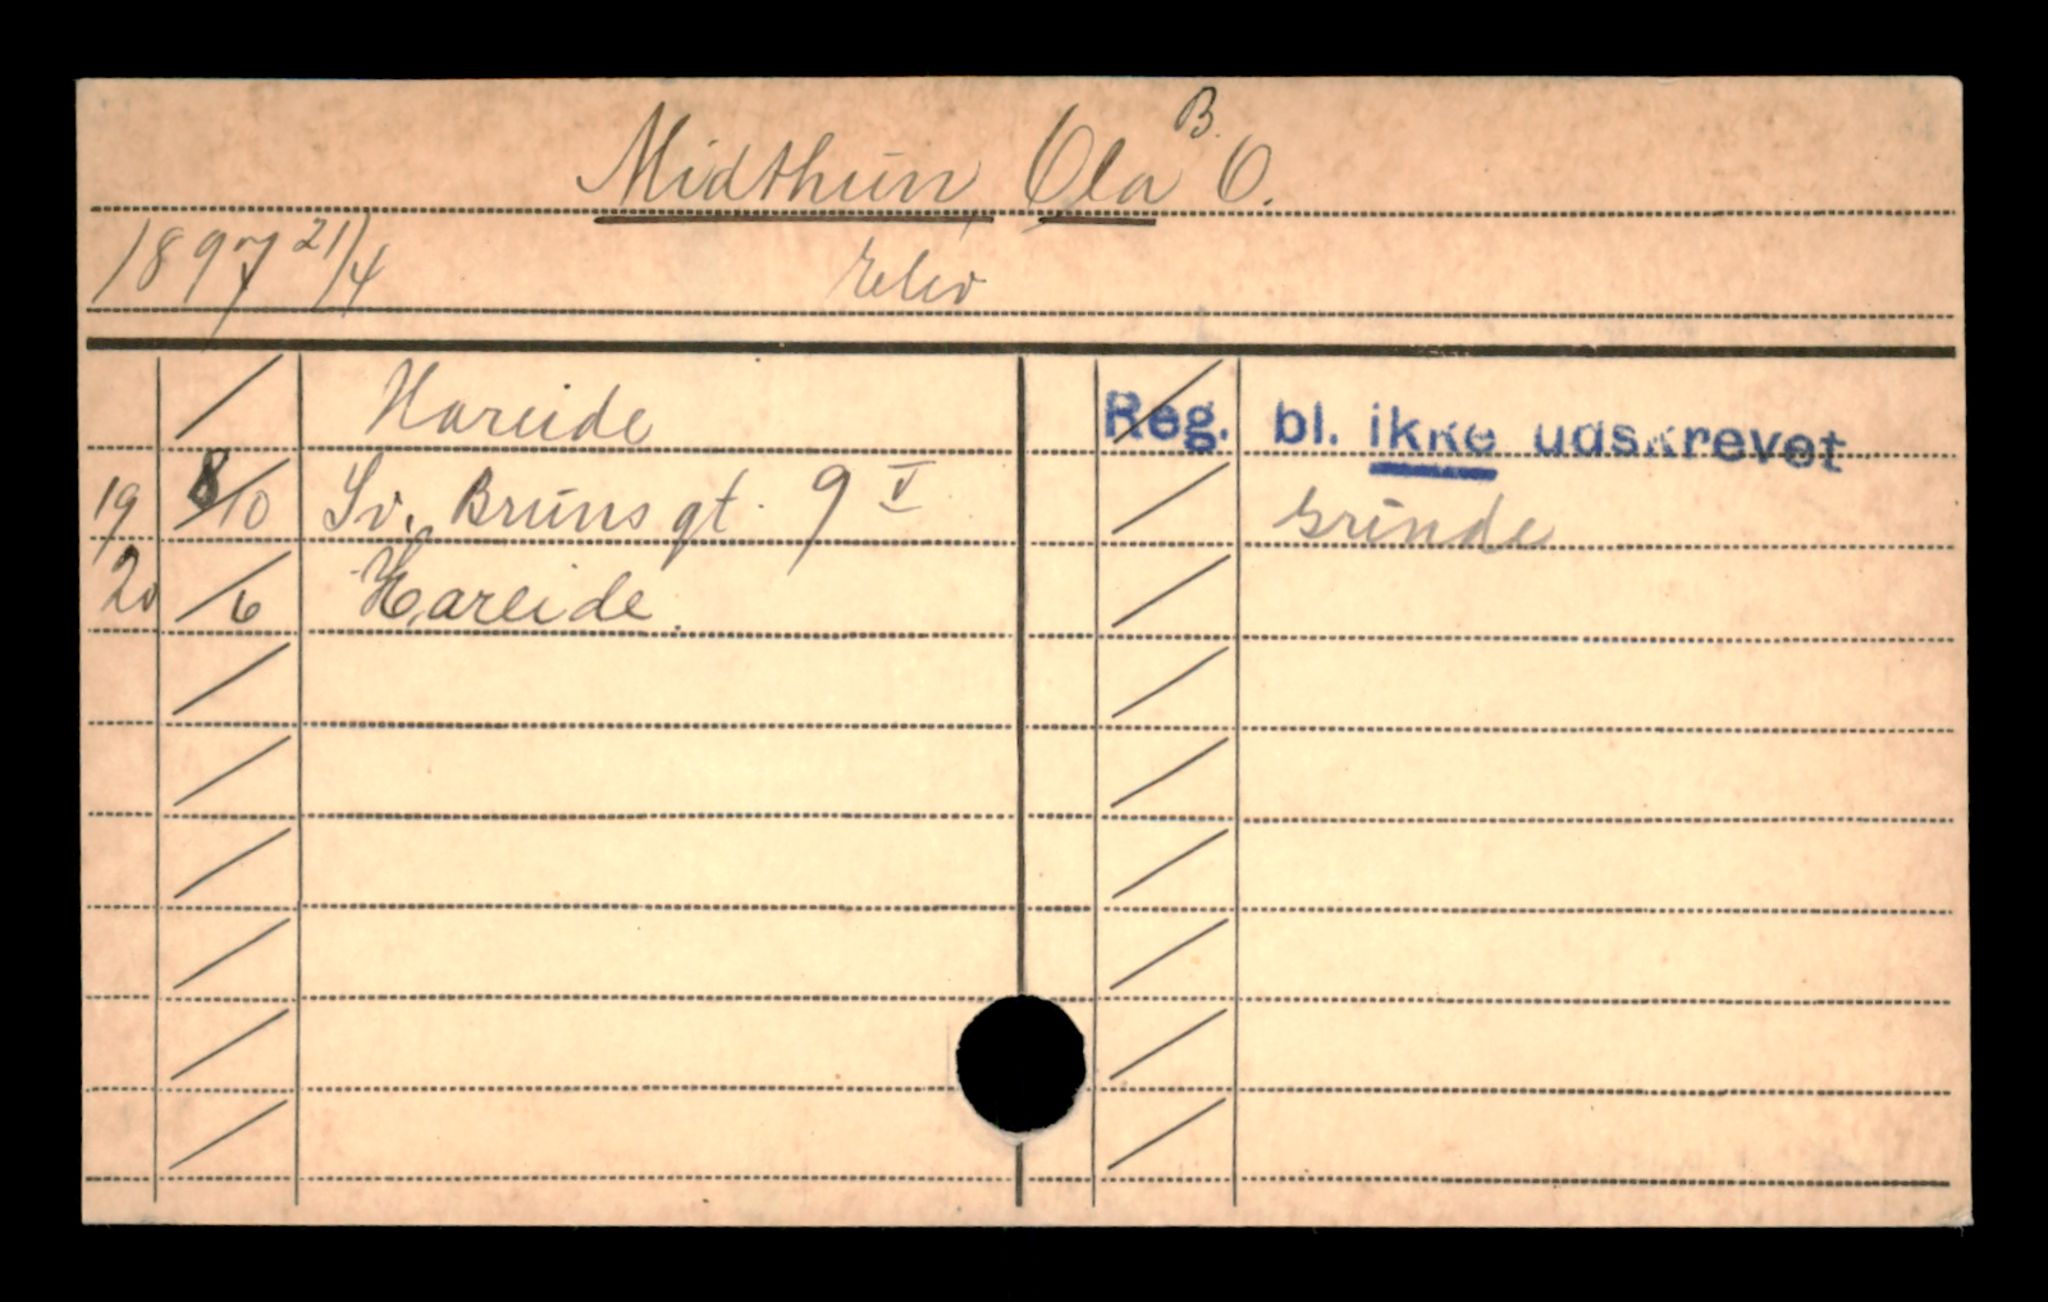 Midthun, Ola B. O.
1897 21/4 Elev
Hareide Reg. bl. ikke udskrevet
19 8/10 Sv. Bruns gt. 9 V Grinde
20 /6 Hareide.